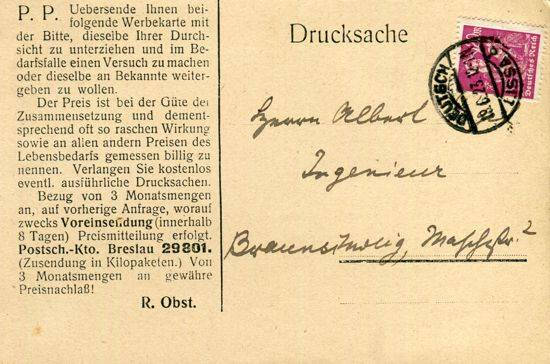 P. P. Uebersende Ihnen bei-
folgende Werbekarte mit
der Bitte, dieselbe Ihrer Durch-
sicht zu unterziehen und im Be-
darfsfalle einen Versuch zu machen
oder dieselbe an Bekannte weiter-
geben zu wollen.
Der Preis ist bei der Güte der
Zusammensetzung und dement-
sprechend oft so raschen Wirkung
sowie an allen andern Preisen des
Lebensbedarfs gemessen billig zu
nennen. Verlangen Sie kostenlos
eventl. ausführliche Drucksachen.
Bezug von 3 Monatsmengen
an, auf vorherige Anfrage, worauf
zwecks Voreinsendung (innerhalb
8 Tagen) Preismitteilung erfolgt.
Postsch.-Kto. Breslau 29801.
(Zusendung in Kilopaketen.) Von
3 Monatsmengen an gewähre
Preisnachlaß!
R. Obst.
Drucksache
Deutsches Reich
DEUTSCH LISSA
Herrn Albert
Ingenieur
Braunschweig, 2